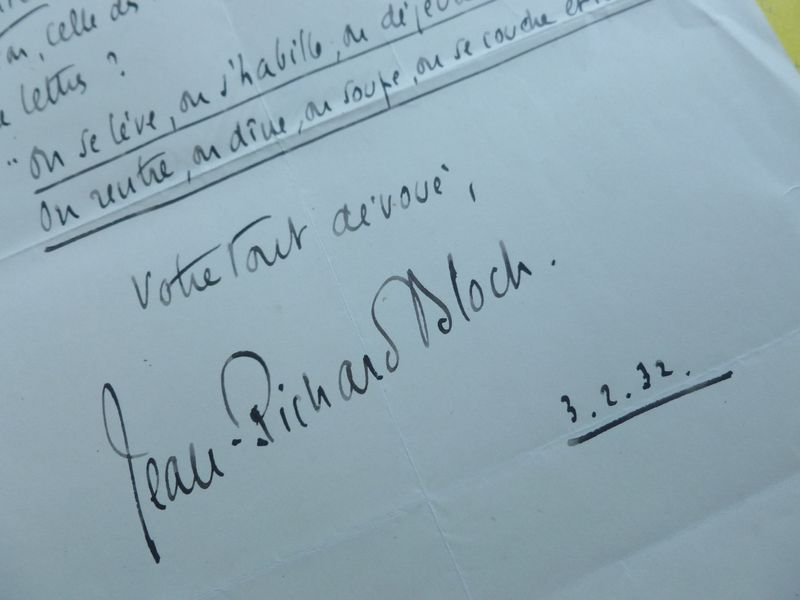 celle des
lettres ?
"on se lève, on s'habille, on
on rentre, on dîne, on soupe, on se couche et
Votre tout dévoué,
Jean-Richard Bloch.
3.2.32.